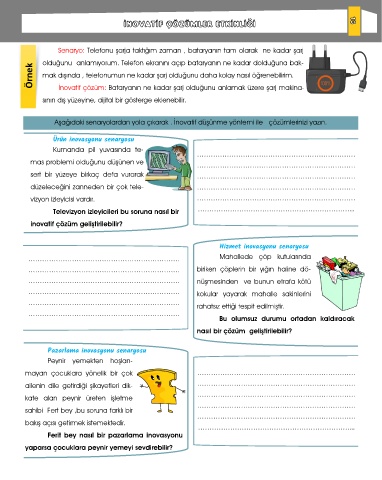 İNOVATİF ÇÖZÜMLER ETKİNLİĞİ
Örnek
Senaryo: Telefonu şarja taktığım zaman , bataryanın tam olarak ne kadar şarj
olduğunu anlamıyorum. Telefon ekranını açıp bataryanın ne kadar dolduğuna bak-
mak dışında , telefonumun ne kadar şarj olduğunu daha kolay nasıl öğrenebilirim.
İnovatif çözüm: Bataryanın ne kadar şarj olduğunu anlamak üzere şarj makina-
sının dış yüzeyine, dijital bir gösterge eklenebilir.
Aşağıdaki senaryolardan yola çıkarak , İnovatif düşünme yöntemi ile çözümlerinizi yazın.
Ürün inovasyonu senaryosu
Kumanda pil yuvasında te-
mas problemi olduğunu düşünen ve
sert bir yüzeye birkaç defa vurarak
düzeleceğini zanneden bir çok tele-
vizyon izleyicisi vardır.
Televizyon izleyicileri bu soruna nasıl bir
inovatif çözüm geliştirilebilir?
Hizmet inovasyonu senaryosu
Mahallede çöp kutularında
biriken çöplerin bir yığın haline dö-
nüşmesinden ve bunun etrafa kötü
kokular yayarak mahalle sakinlerini
rahatsız ettiği tespit edilmiştir.
Bu olumsuz durumu ortadan kaldıracak
nasıl bir çözüm geliştirilebilir?
Pazarlama inovasyonu senaryosu
Peynir yemekten hoşlan-
mayan çocuklara yönelik bir çok
ailenin dile getirdiği şikayetleri dik-
kate alan peynir üreten işletme
sahibi Ferit bey ,bu soruna farklı bir
bakış açısı getirmek istemektedir.
Ferit bey nasıl bir pazarlama inovasyonu
yaparsa çocuklara peynir yemeyi sevdirebilir?